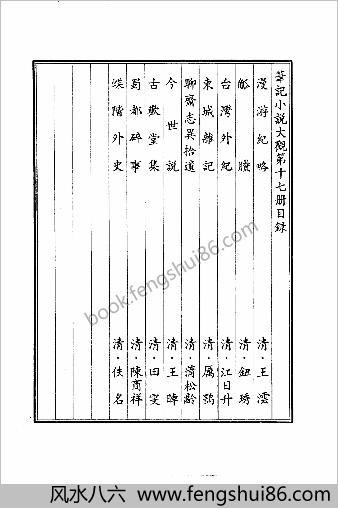 筆記小說大觀第十七册目錄
漫游紀略 清·王澐
觚賸 清·鈕琇
台灣外紀 清·江日升
東城雜記 清·厲鶚
聊齋志異拾遺 清·蒲松齡
今世說 清·王晫
古歡堂集 清·田雯
蜀都碎事 清·陳商祥
蝶階外史 清·佚名
book.fengshui86.com
风水八六 www.fengshui86.com